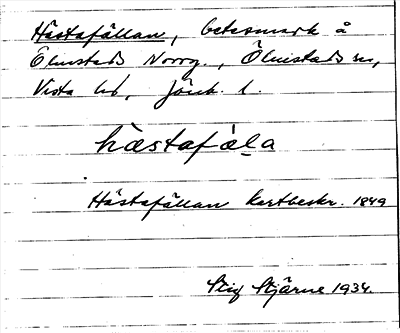 Hästafällan, betesmark å
Ölmstads Norrg., Ölmstads sn,
Vista hd, Jönk. l.
hästafäla
Hästafällan Kartbeskr. 1849
Stig Stjärne 1934.